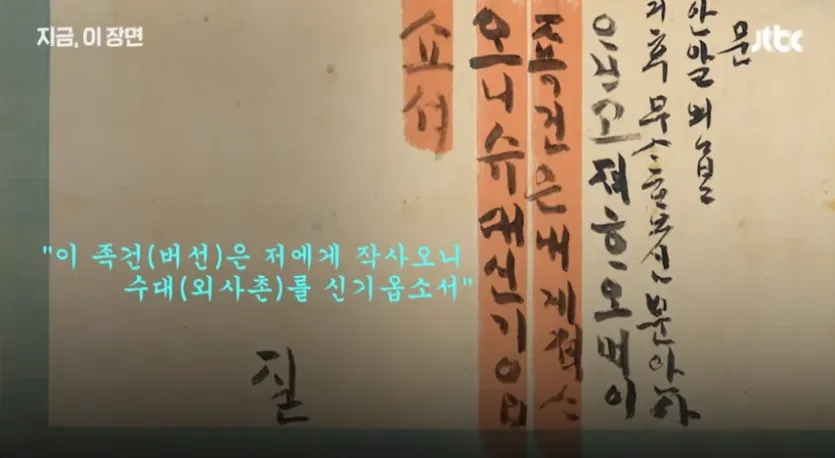 지금, 이 장면
jtbc
문
안알외
후무ᄉᆞᄒᆞ오신문안아
고져ᄒᆞ오며이
죡건은내게젹ᄉᆞ
오니슈대신기옵
쇼셔
"이 족건(버선)은 저에게 작사오니
수대(외사촌)를 신기옵소서"
질